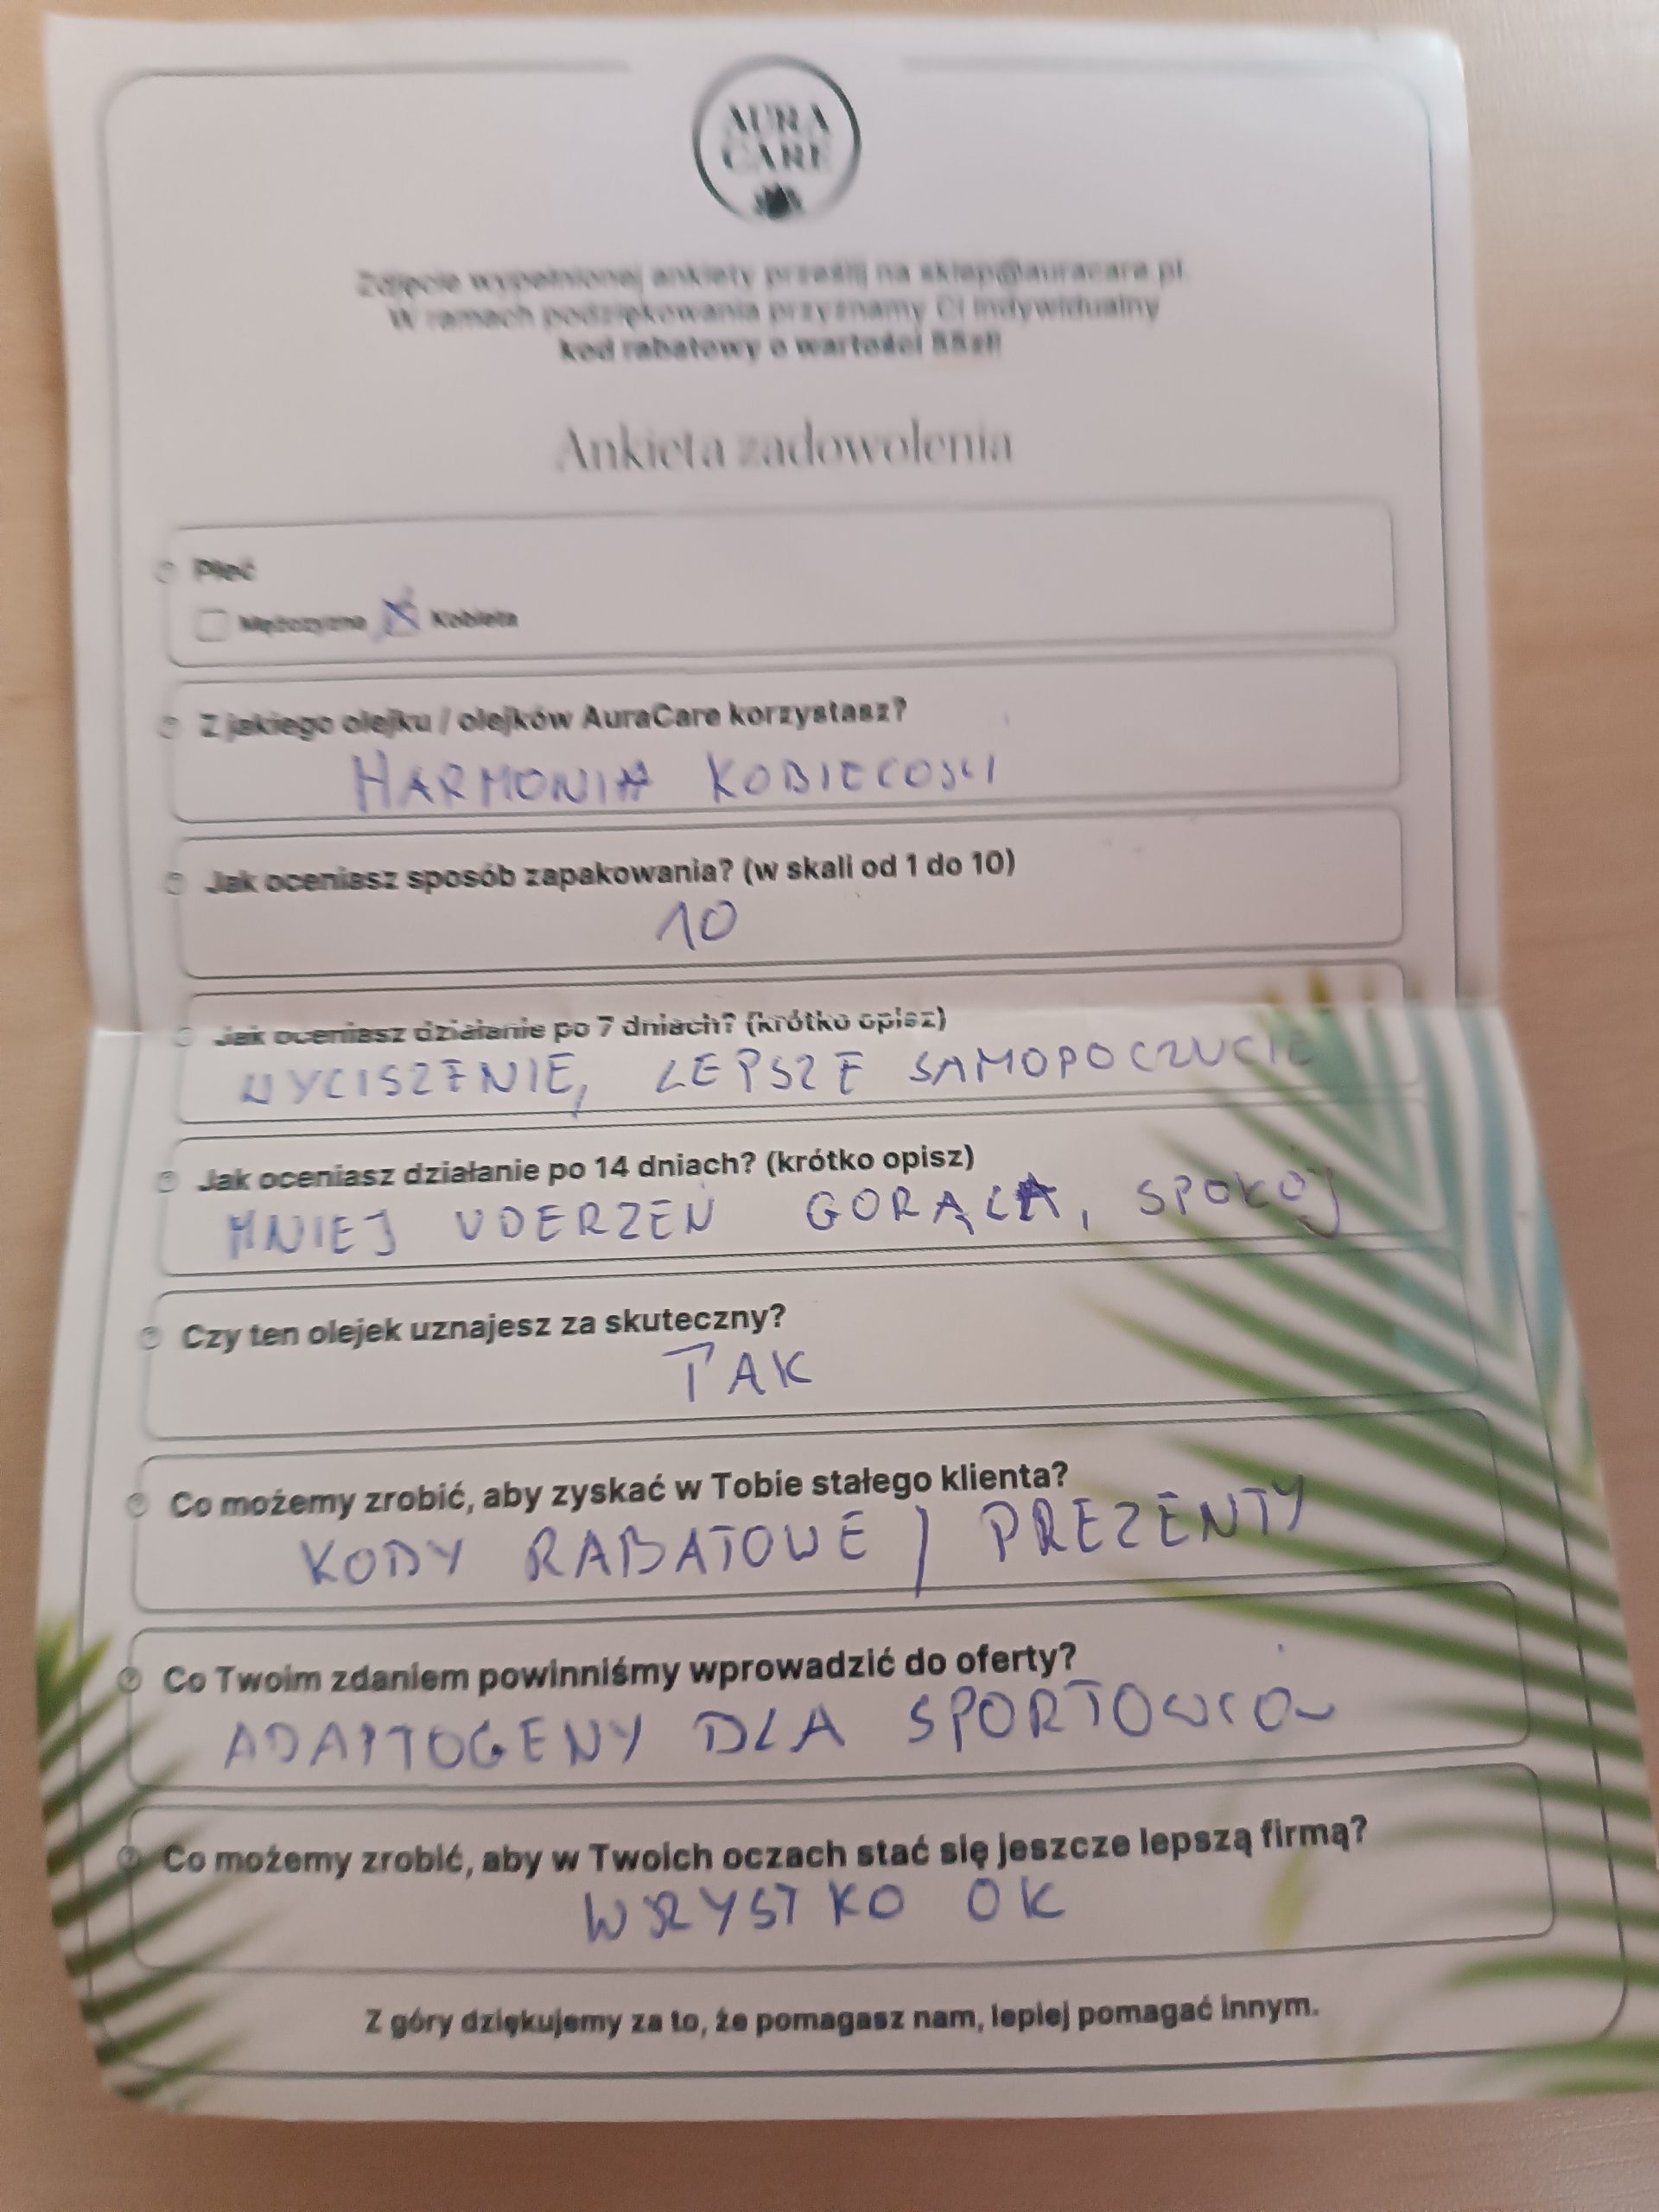 AURA
CARE
Zdjęcie wypełnionej ankiety prześlij na sklep@auracare.pl.
W ramach podziękowania przyznamy Ci indywidualny
kod rabatowy o wartości
Ankieta zadowolenia
Płeć
Mężczyzna Kobieta
Z jakiego olejku / olejków AuraCare korzystasz?
HARMONIA KOBIECOSCI
Jak oceniasz sposób zapakowania? (w skali od 1 do 10)
10
Jak oceniasz działanie po 7 dniach? (krótko opisz)
WYCISZENIE, LEPSZE SAMOPOCZUCIE
Jak oceniasz działanie po 14 dniach? (krótko opisz)
MNIEJ UDERZEŃ GORĄCA, SPOKÓJ
Czy ten olejek uznajesz za skuteczny?
TAK
Co możemy zrobić, aby zyskać w Tobie stałego klienta?
KODY RABATOWE / PREZENTY
Co Twoim zdaniem powinniśmy wprowadzić do oferty?
ADAPTOGENY DLA SPORTOWCÓW
Co możemy zrobić, aby w Twoich oczach stać się jeszcze lepszą firmą?
WSZYSTKO OK
Z góry dziękujemy za to, że pomagasz nam, lepiej pomagać innym.